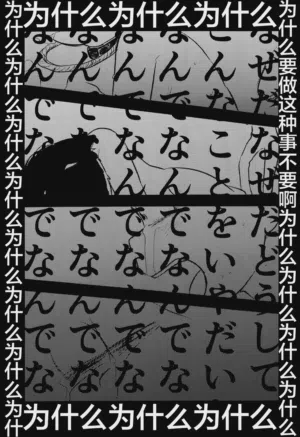 为什么为什么为什么
为什么要做这种事不要啊为什么为什么为什么为什么
なぜだなぜだどうして
こんなことをいやだい
なんでなんでなんでな
なんでなんでなんでな
なんでなんでなんでな
なんでなんでなんでな
为什么为什么为什么为什么为什么为什么为什么为什
为什么为什么为什么